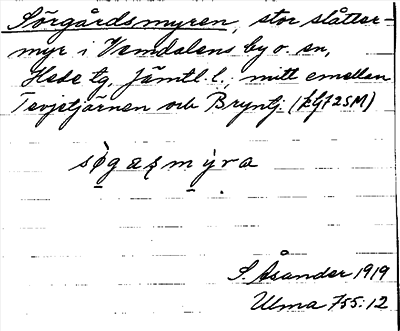 Sörgårdsmyren, stor slåtter-
myr i Vemdalens by o. sn,
Hede tg, Jämtl. l., mitt emellan
Tevjetjärnen och Bryntj.
søgaʂmyra
S. Åsander 1919
Ulma 755:12